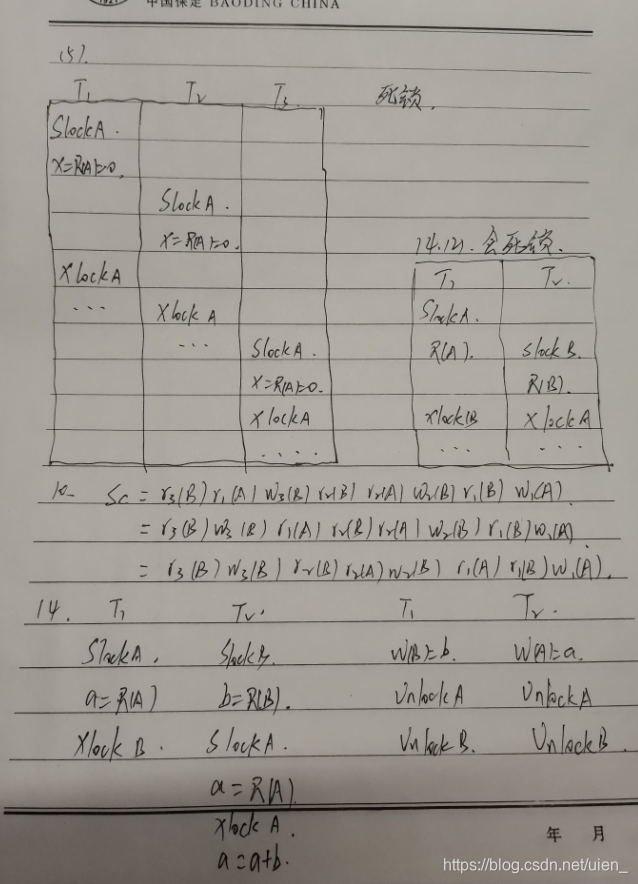 中国保定 BAODING CHINA
(5).
T1 T2 T3 死锁.
SlockA.
X=R(A)=0.
SlockA.
X=R(A)=0.
14.(2). 会死锁.
XlockA
T1 T2.
... Xlock A
SlockA.
... SlockA.
R(A). slock B.
X=R(A)=0.
R(B).
XlockA
xlock B XlockA
....
... ...
10. Sc = r3(B) r1(A) W3(B) r2(B) r2(A) W2(B) r1(B) W1(A)
= r3(B) W3(B) r1(A) r2(B) r2(A) W2(B) r1(B) W1(A)
= r3(B) W3(B) r2(B) r2(A) W2(B) r1(A) r1(B) W1(A).
14. T1 T2. T1 T2.
SlockA. SlockB. W(B)=b. W(A)=a.
a=R(A) b=R(B). UnlockA UnlockA
Xlock B. SlockA. UnlockB. UnlockB.
a=R(A)
XlockA.
a=a+b.
年 月
https://blog.csdn.net/uien_